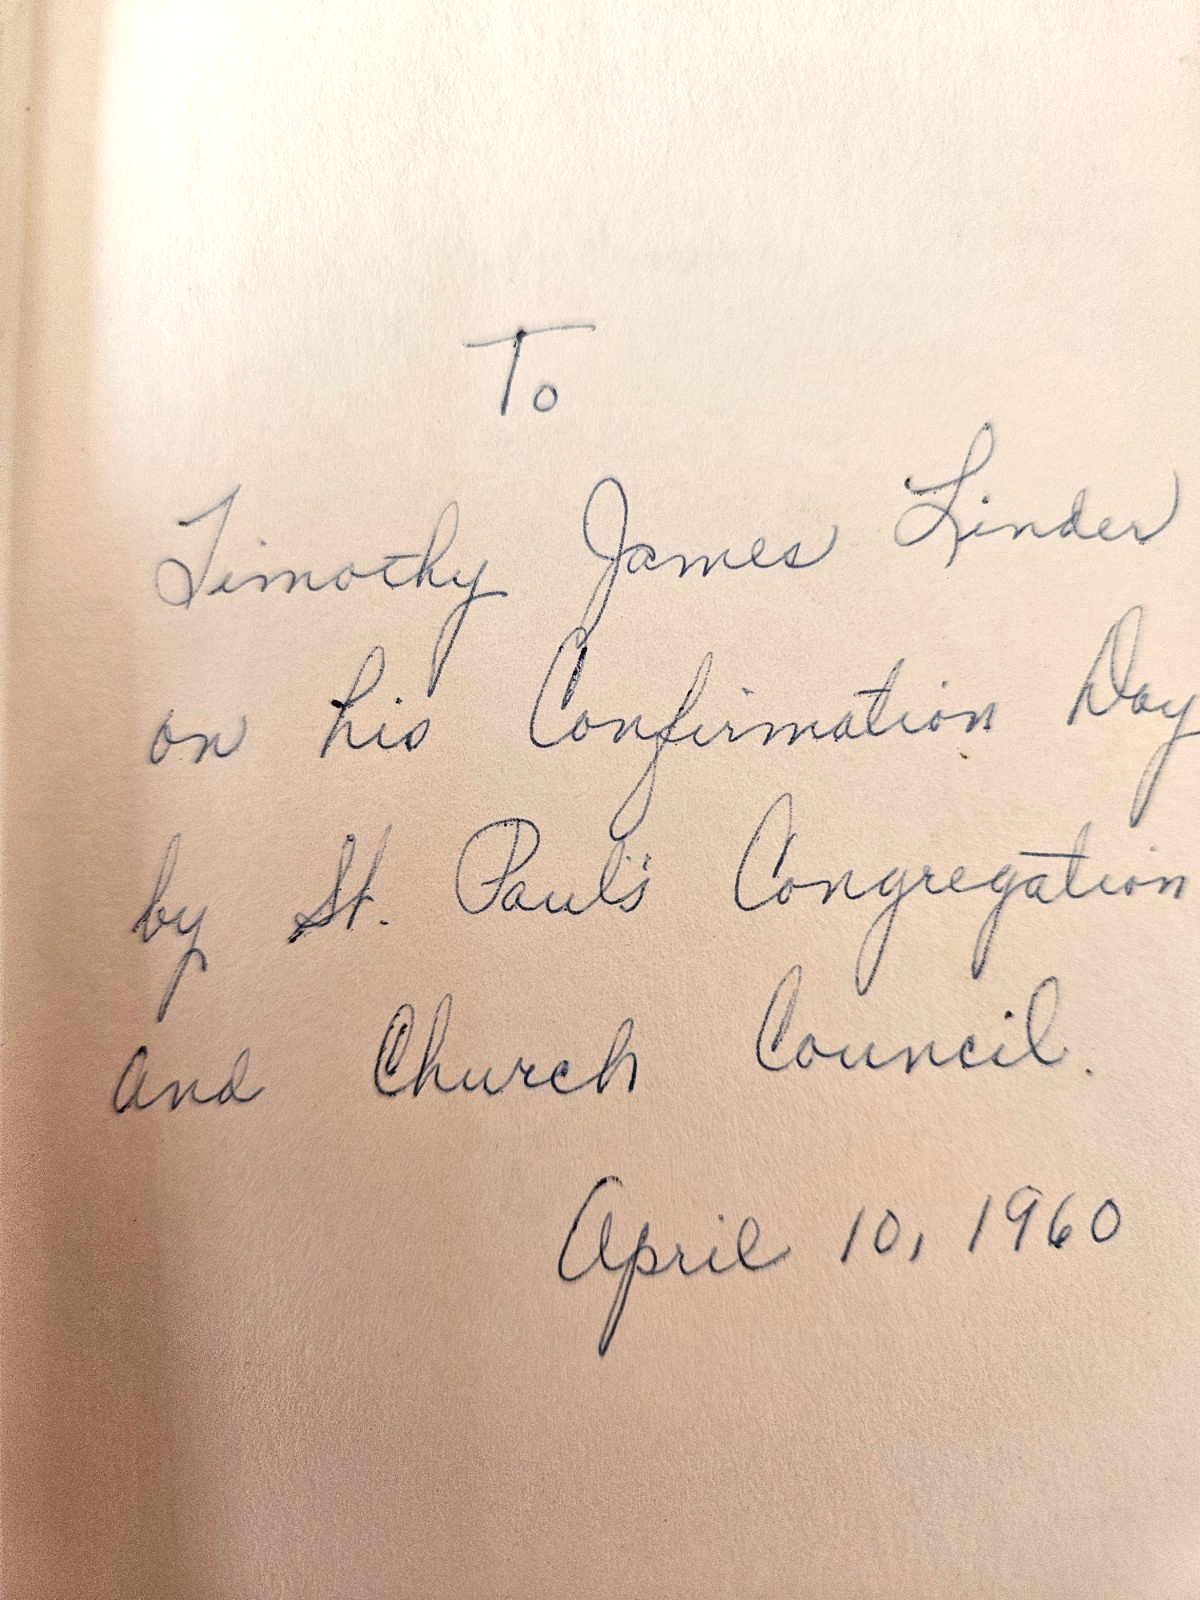 To
Timothy James Linder
on his Confirmation Day
by St. Paul's Congregation
and Church Council.
April 10, 1960